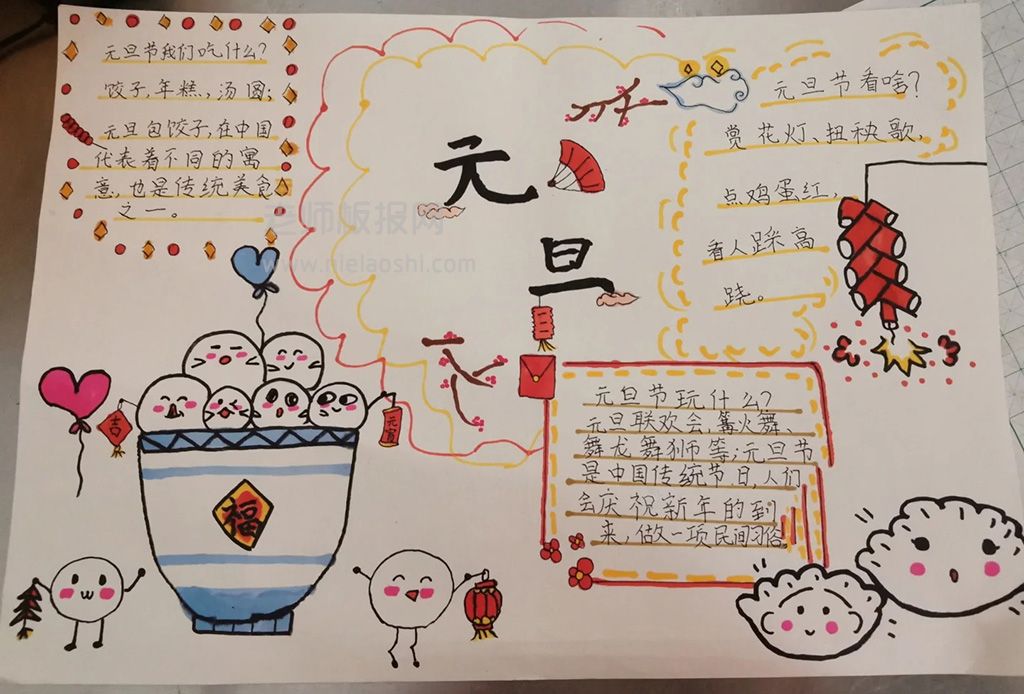 元旦节我们吃什么?
饺子,年糕、汤圆;
元旦包饺子,在中国
代表着不同的寓
意,也是传统美食
之一。
元
旦
元旦节看啥?
赏花灯、扭秧歌,
点鸡蛋红,
看人踩高
跷。
元旦节玩什么?
元旦联欢会,篝火舞、
舞龙舞狮等;元旦节
是中国传统节日,人们
会庆祝新年的到
来,做一项民间习俗
吉
元宵
福
老师板报网
www.nielaoshi.com